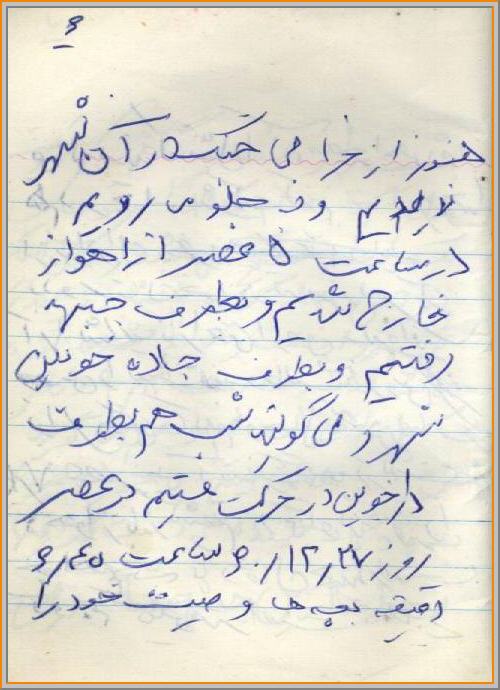 ۶
هنوز از خرابی جنگ در آن شهر
ندیدیم و جلو می رویم
در ساعت ۵ عصر از اهواز
خارج شدیم و بطرف جبهه
رفتیم و بطرف جاده خونین
شهر و می گویند شب هم بطرف
دارخوین در حرکت هستیم در عصر
روز ۶۰/۱۲/۲۷ ساعت ۶/۴۵
دقیقه بچه ها وصیت خود را